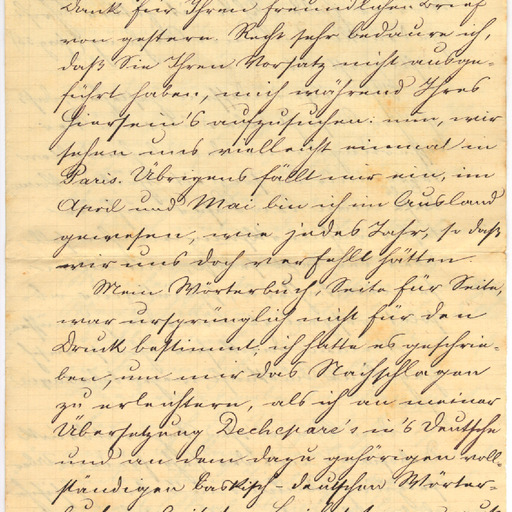 Dank für Ihren freundlichen Brief
von gestern. Recht sehr bedaure ich,
daß Sie Ihren Vorsatz nicht ausge-
führt haben, mich während Ihres
Hiersein's aufzusuchen: nun, wir
sehen uns vielleicht einmal in
Paris. Übrigens fällt mir ein, im
April und Mai bin ich im Ausland
gewesen, wie jedes Jahr, so daß
wir uns doch verfehlt hätten.
Mein Wörterbuch, Seite für Seite,
war ursprünglich nicht für den
Druck bestimmt, ich hatte es geschrie-
ben, um mir das Nachschlagen
zu erleichtern, als ich an meiner
Übersetzung Dechepare's in's Deutsche
und an dem dazu gehörigen voll-
ständigen baskisch-deutschen Wörter-